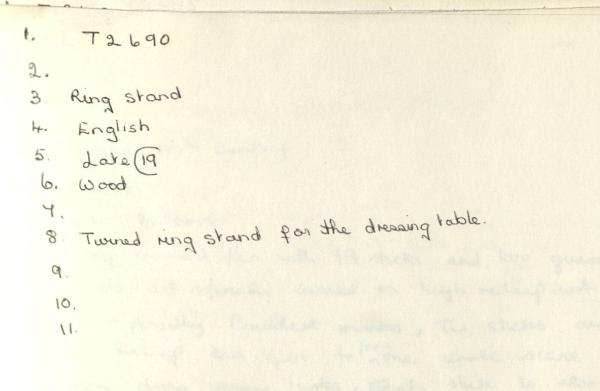 1. T2690
2.
3 Ring stand
4. English
5. Late 19
6. Wood
7.
8 Turned ring stand for the dressing table.
9.
10.
11.